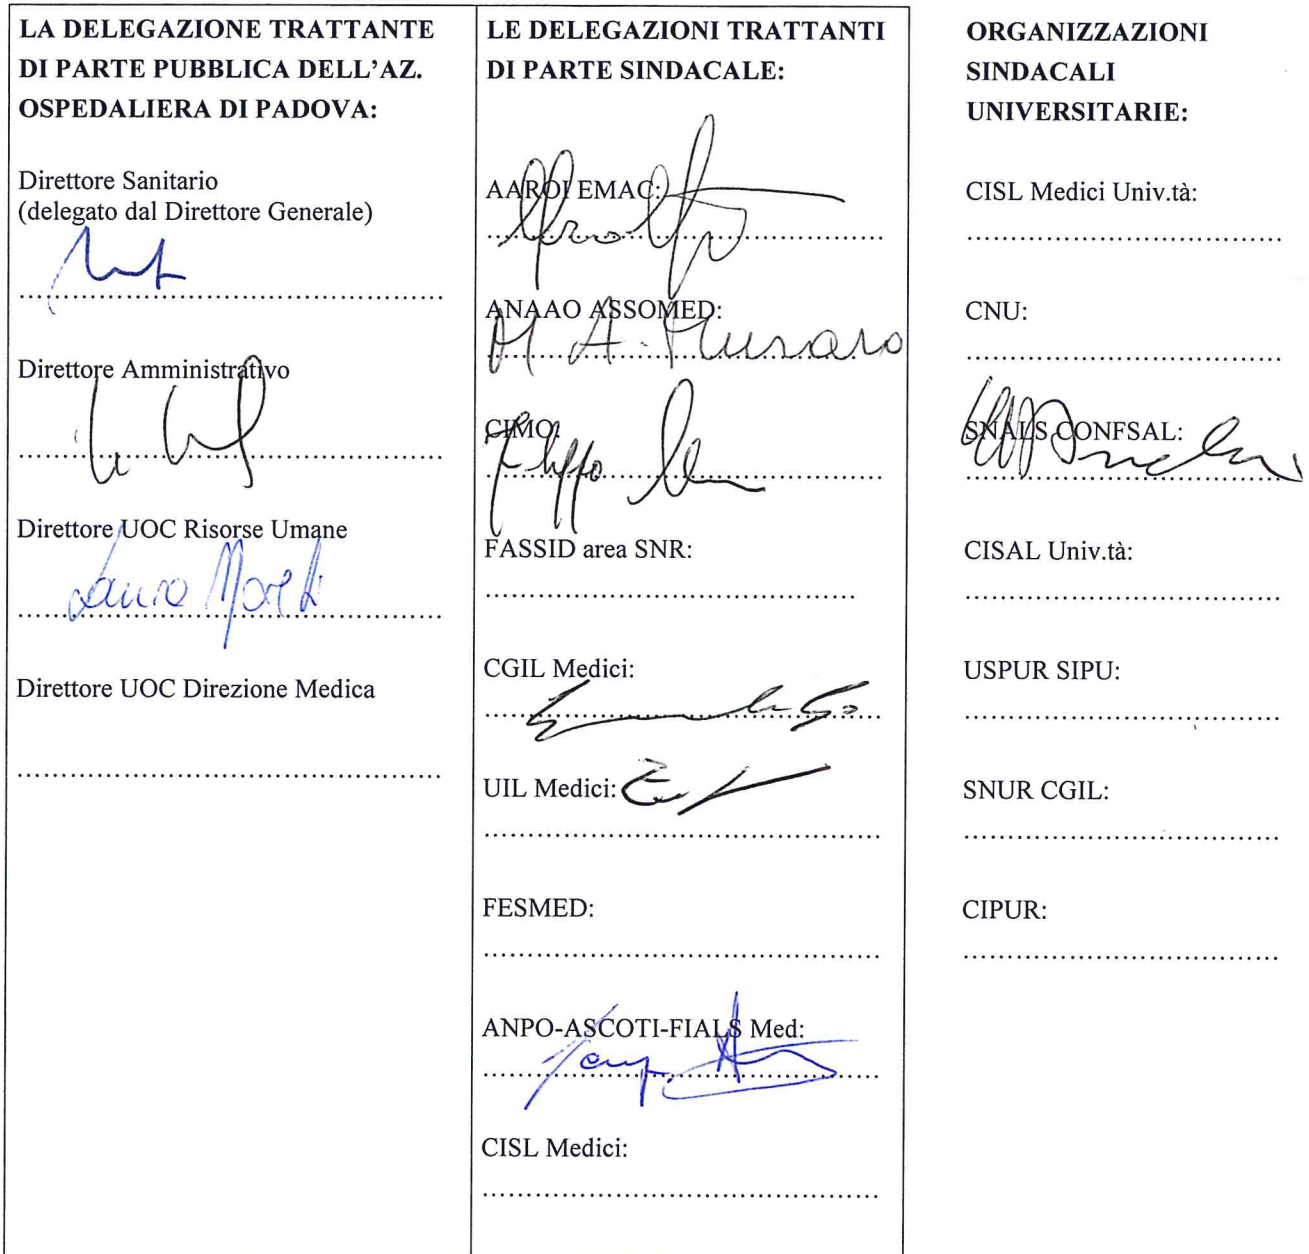 LA DELEGAZIONE TRATTANTE
DI PARTE PUBBLICA DELL'AZ.
OSPEDALIERA DI PADOVA:
Direttore Sanitario
(delegato dal Direttore Generale)
................................................
Direttore Amministrativo
................................................
Direttore UOC Risorse Umane
Laura Moretti
................................................
Direttore UOC Direzione Medica
................................................
LE DELEGAZIONI TRATTANTI
DI PARTE SINDACALE:
AAROI EMAC:
................................................
ANAAO ASSOMED:
M A. Munaro
................................................
CIMO:
Filippo
................................................
FASSID area SNR:
................................................
CGIL Medici:
................................................
UIL Medici:
................................................
FESMED:
................................................
ANPO-ASCOTI-FIALS Med:
................................................
CISL Medici:
................................................
ORGANIZZAZIONI
SINDACALI
UNIVERSITARIE:
CISL Medici Univ.tà:
....................................
CNU:
....................................
SNALS CONFSAL:
....................................
CISAL Univ.tà:
....................................
USPUR SIPU:
....................................
SNUR CGIL:
....................................
CIPUR:
....................................